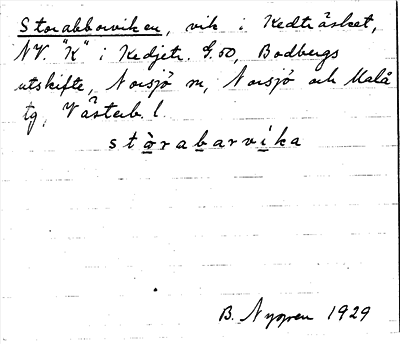 Storabborviken, vik i Kedträsket,
NV. "K" i Kedjetr. G.50, Bodbergs
utskifte, Norsjö sn, Norsjö och Malå
tg, Västerb. l.
stòrabarvika
B. Nygren 1929